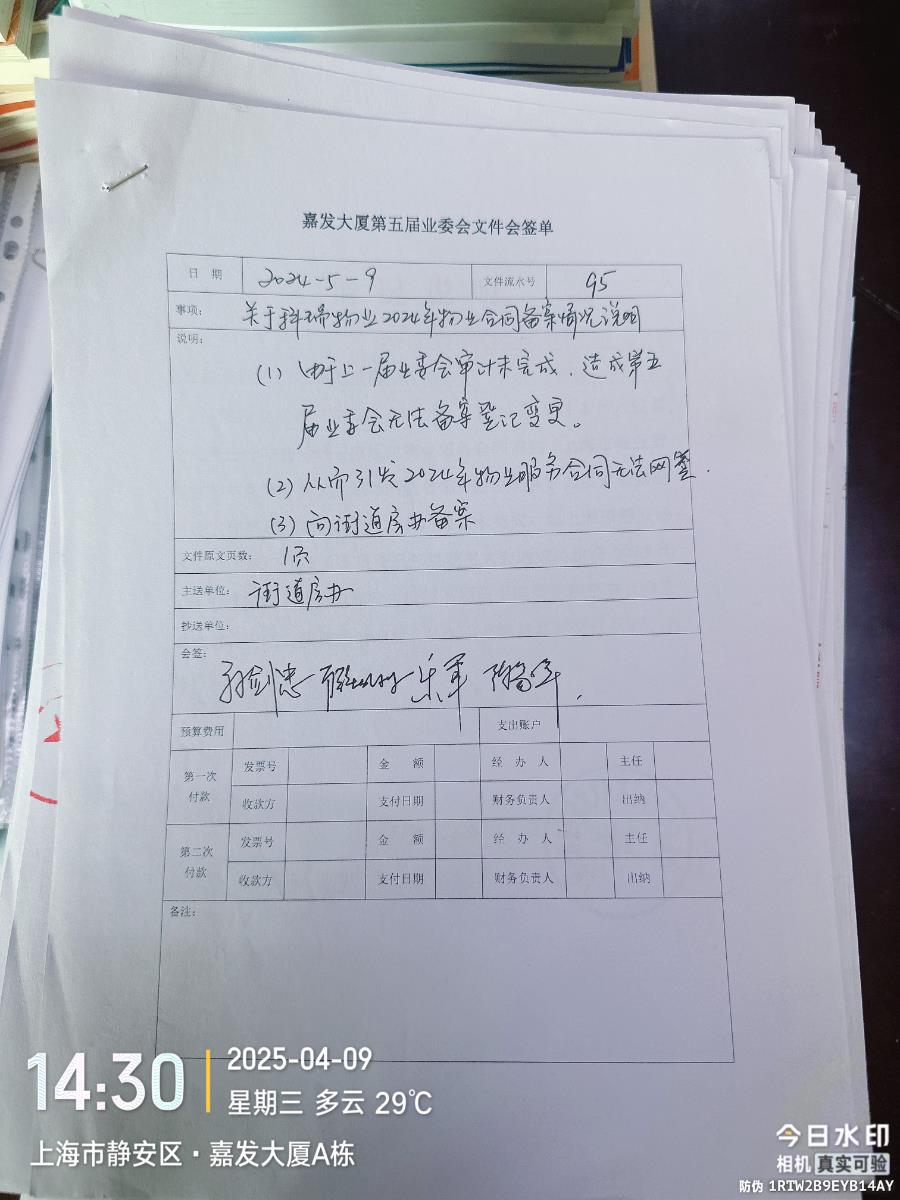 嘉发大厦第五届业委会文件会签单
日 期 2024-5-9 文件流水号 95
事项： 关于科瑞物业2024年物业合同备案情况说明
说明：
(1) 由于上一届业委会审计未完成，造成第五
届业委会无法备案登记变更。
(2) 从而引发2024年物业服务合同无法网签.
(3) 向街道房办备案
文件原文页数： 1页
主送单位： 街道房办
抄送单位：
会签： 乐军
预算费用 支出账户
第一次付款 发票号 金 额 经 办 人 主任
收款方 支付日期 财务负责人 出纳
第二次付款 发票号 金 额 经 办 人 主任
收款方 支付日期 财务负责人 出纳
备注：
14:30 2025-04-09
星期三 多云 29℃
上海市静安区·嘉发大厦A栋
今日水印
相机 真实可验
防伪 1RTW2B9EYB14AY